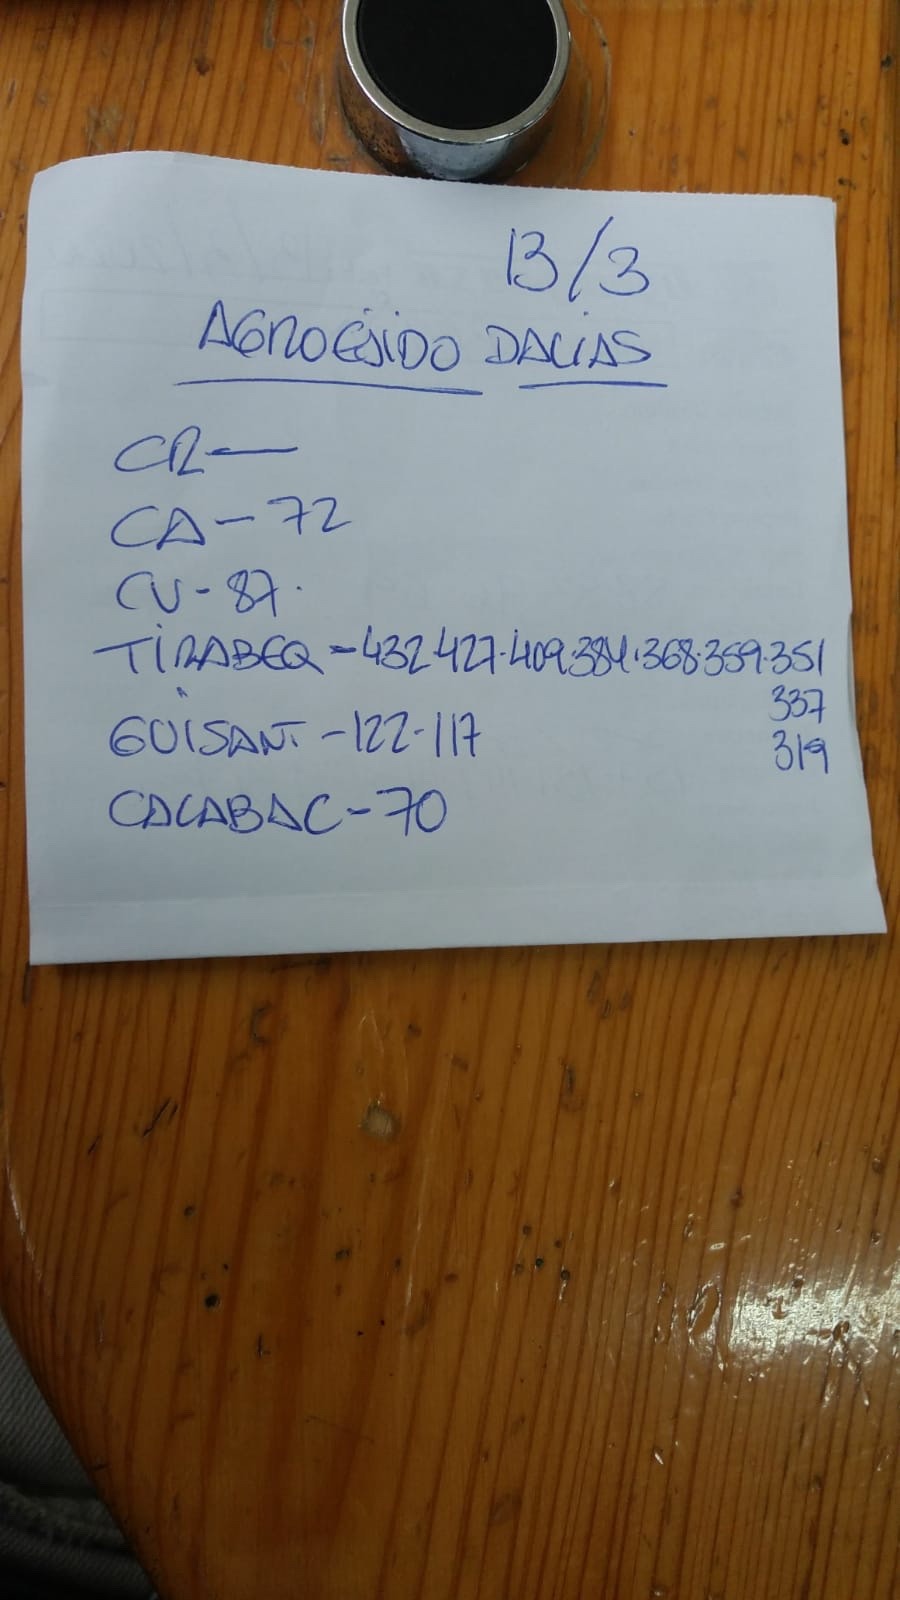 13/3
AGROEJIDO DALIAS
CR —
CA - 72
CU - 87.
TIRABEQ - 432 427.409.384.368.359.351
337
GUISANT. - 122-117
319
CALABAC - 70